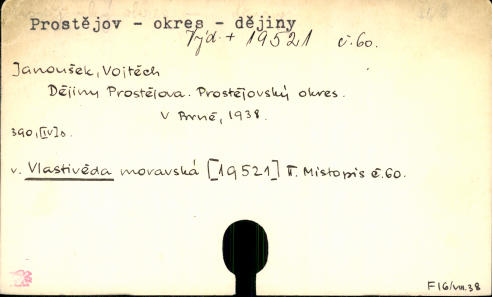 Prostějov - okres - dějiny
Výd. + 19521 č. 60.
Janoušek, Vojtěch
Dějiny Prostějova. Prostějovský okres.
V Brně, 1938.
390, [IV] s.
v. Vlastivěda moravská [19521] II. Místopis č. 60.
F16/VIII.38